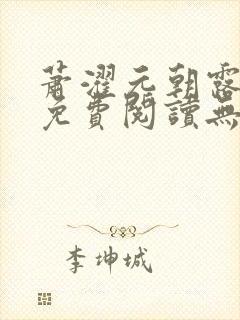 蕭濯元朝露
免費閱讀無
李坤城